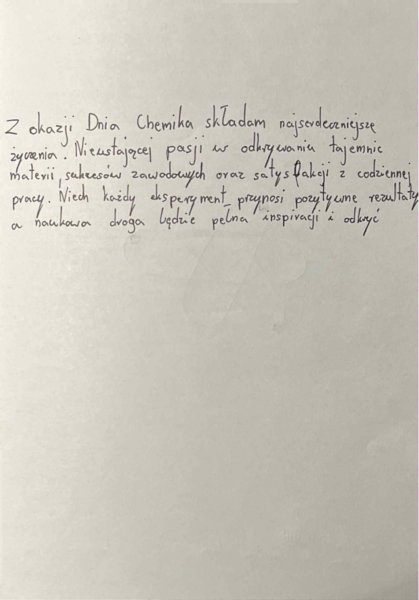 Z okazji Dnia Chemika składam najserdeczniejsze
życzenia. Nieustającej pasji w odkrywaniu tajemnic
materii, sukcesów zawodowych oraz satysfakcji z codziennej
pracy. Niech każdy eksperyment przynosi pozytywne rezultaty
a naukowa droga będzie pełna inspiracji i odkryć